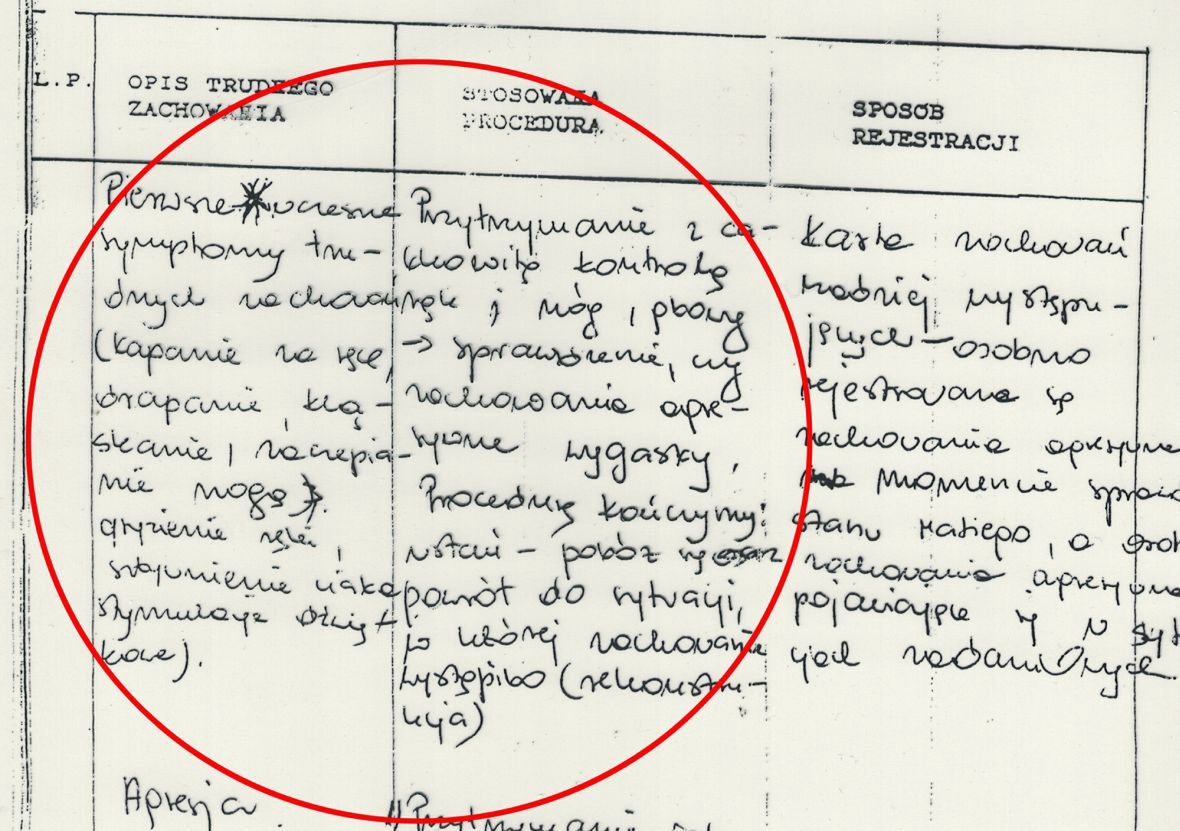 L.P.
OPIS TRUDNEGO
ZACHOWANIA
STOSOWANA
PROCEDURA
SPOSÓB
REJESTRACJI
Pierwsze wczesne
symptomy tru-
dnych zachowań
(kapanie na ręce,
drapanie, kla-
skanie, zaczepia-
nie nogą).
gryzienie ręki,
stymulacje dźwięk-
kowe).
Przytrzymanie z ca-
łkowitą kontrolą
rąk i nóg, głowy
→ sprawdzenie, czy
zachowania agre-
sywne wygasły,
Procedurę kończymy:
wstań –
powrót do sytuacji,
w której zachowanie
wystąpiło (rekonstru-
kcja)
Każde zachowań
rzadziej występu-
jących – osobno
rejestrowane są
zachowania agresywne
momencie
stanu, a
zachowania agresywne
pojawiające się w
zadaniowych.
Agresja
Przytrzymanie